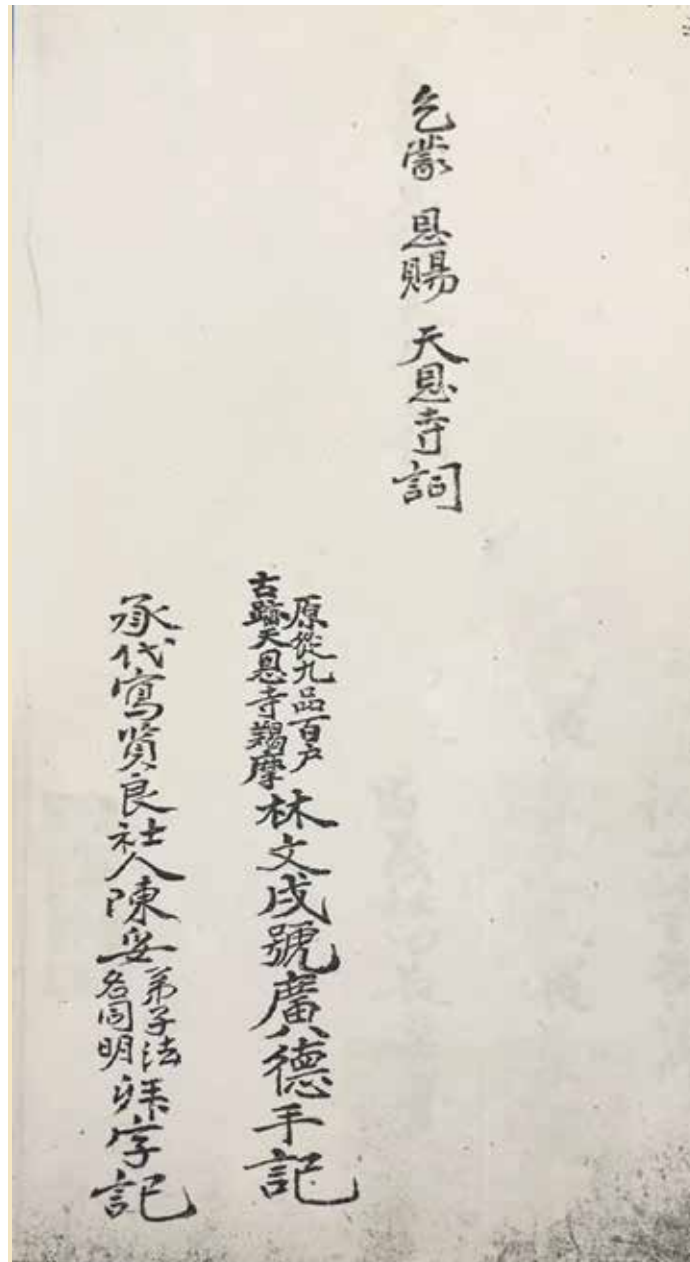 乞蒙 恩賜 天恩寺詞
原從九品百户
古跡天恩寺羯摩
林文戌號廣德手記
承代寫賢良社人陳
弟子法
名同明
拜字記